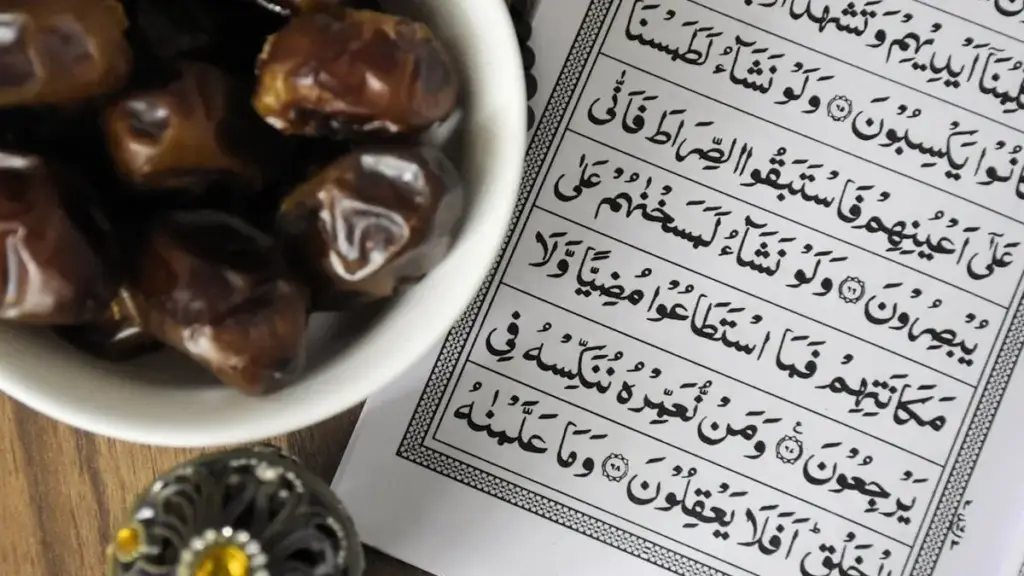 اَيْدِيْهِمْ وَ تَشْهَدُ
كَانُوْا يَكْسِبُوْنَ ۝٦٥ وَلَوْ نَشَآءُ لَطَمَسْنَا
عَلٰٓى اَعْيُنِهِمْ فَاسْتَبَقُوا الصِّرَاطَ فَاَنّٰى
يُبْصِرُوْنَ ۝٦٦ وَلَوْ نَشَآءُ لَمَسَخْنٰهُمْ عَلٰى
مَكَانَتِهِمْ فَمَا اسْتَطَاعُوْا مُضِيًّا وَّلَا
يَرْجِعُوْنَ ۝٦٧ وَمَنْ نُّعَمِّرْهُ نُنَكِّسْهُ فِى
الْخَلْقِؕ اَفَلَا يَعْقِلُوْنَ ۝٦٨ وَمَا عَلَّمْنٰهُ